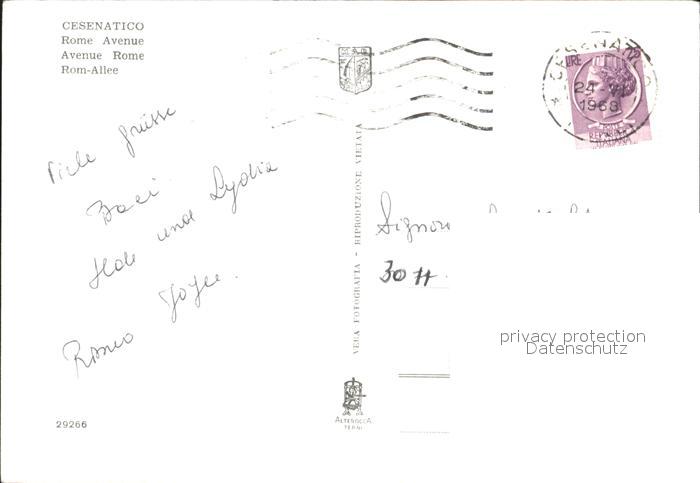 CESENATICO
Rome Avenue
Avenue Rome
Rom-Allee
Viele Grüsse
Baci
und Lydia
Romeo
29266
VERA FOTOGRAFIA - RIPRODUZIONE VIETATA
ALTEROCCA
TERNI
CESENATICO
24-VI
1968
LIRE
Signori
30 H.
privacy protection
Datenschutz